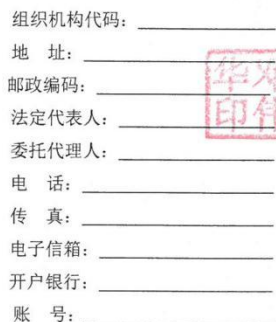 组织机构代码：
地 址：
邮政编码：
法定代表人：
委托代理人：
电 话：
传 真：
电子信箱：
开户银行：
账 号：